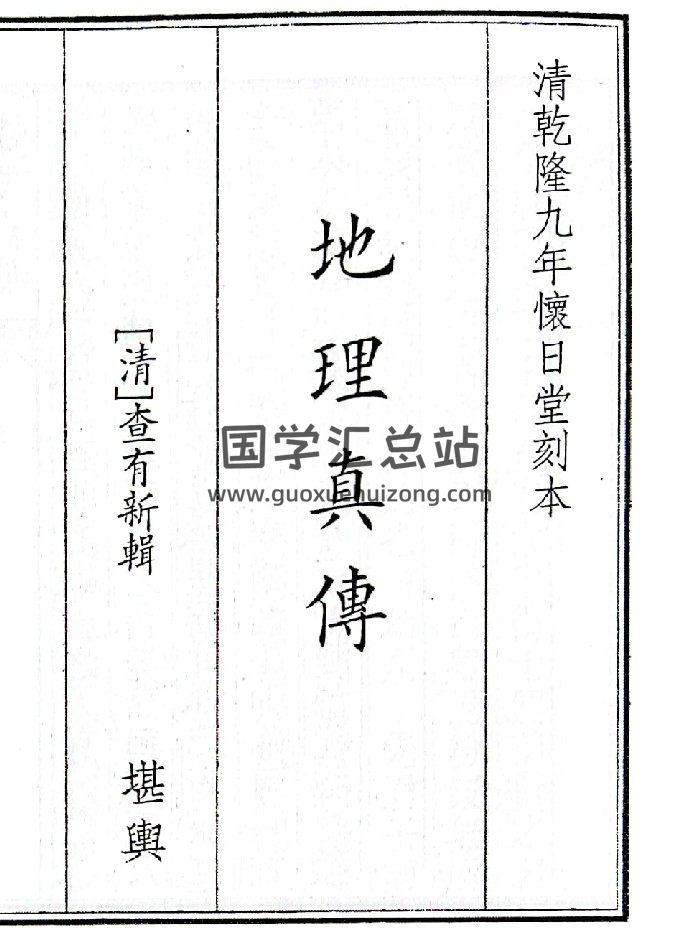 清乾隆九年懷日堂刻本
地理真傳
[清]查有新輯
堪輿
国学汇总站
www.guoxuehuizong.com